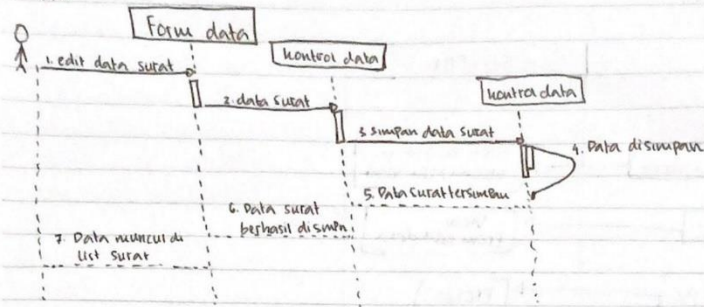 Form data
kontrol data
kontrol data
1. edit data surat
2. data surat
3. simpan data surat
4. Data disimpan
5. Data surat tersimpan
6. Data surat
berhasil dismin
7. Data muncul di
list surat